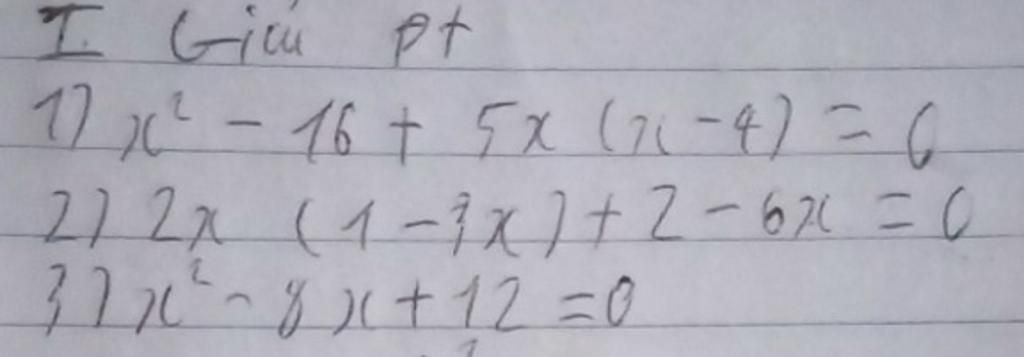 I. Giải pt
1) x² - 16 + 5x (x - 4) = 0
2) 2x (1 - 3x) + 2 - 6x = 0
3) x² - 8x + 12 = 0